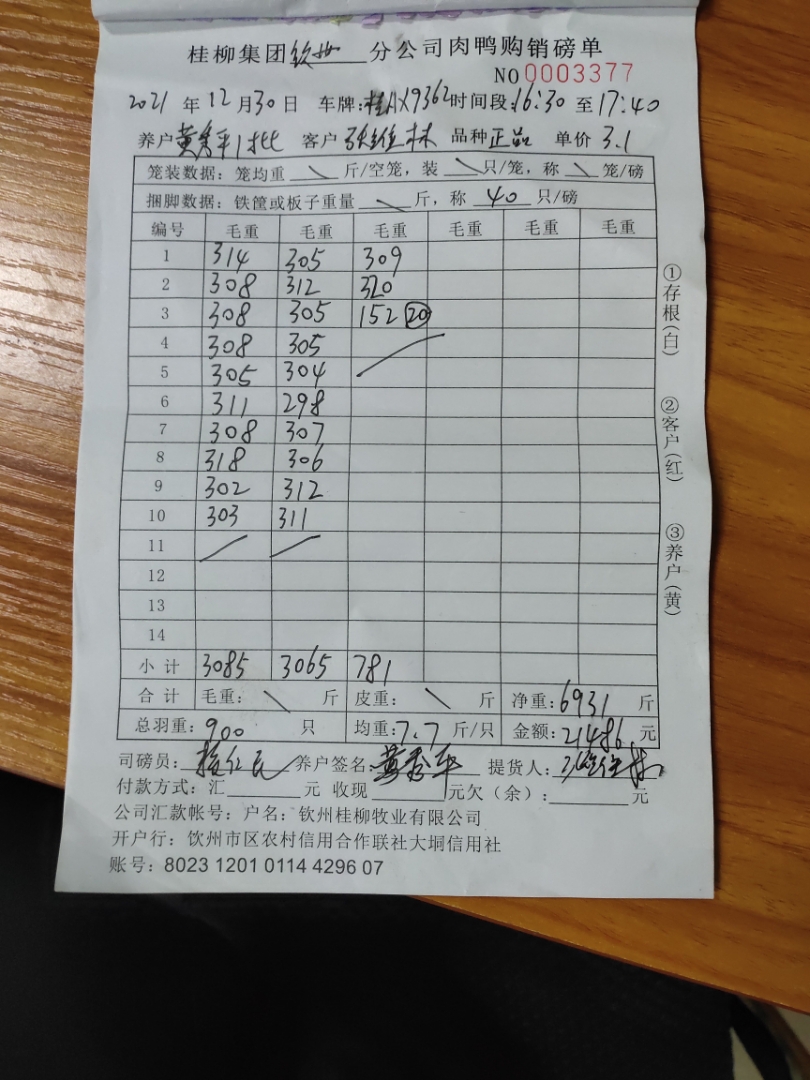 桂柳集团钦州分公司肉鸭购销磅单
NO 0003377
2021年12月30日 车牌:桂AX9362 时间段:16:30至17:40
养户黄秀平1批 客户张维林 品种正品 单价3.1
笼装数据:笼均重 \ 斤/空笼,装 \ 只/笼,称 \ 笼/磅
捆脚数据:铁筐或板子重量 \ 斤,称 40 只/磅
编号 毛重 毛重 毛重 毛重 毛重 毛重
1 314 305 309
2 308 312 320
3 308 305 152 ⑳
4 308 305 /
5 305 304
6 311 298
7 308 307
8 318 306
9 302 312
10 303 311
11 / /
12
13
14
小计 3085 3065 781
合计 毛重: \ 斤 皮重: \ 斤 净重:6931斤
总羽重:900只 均重:7.7斤/只 金额:21486.元
司磅员: 养户签名:黄秀平 提货人:张维林
付款方式:汇 元 收现 元欠(余): 元
公司汇款帐号:户名:钦州桂柳牧业有限公司
开户行:饮州市区农村信用合作联社大垌信用社
账号:8023 1201 0114 4296 07
①存根(白)
②客户(红)
③养户(黄)